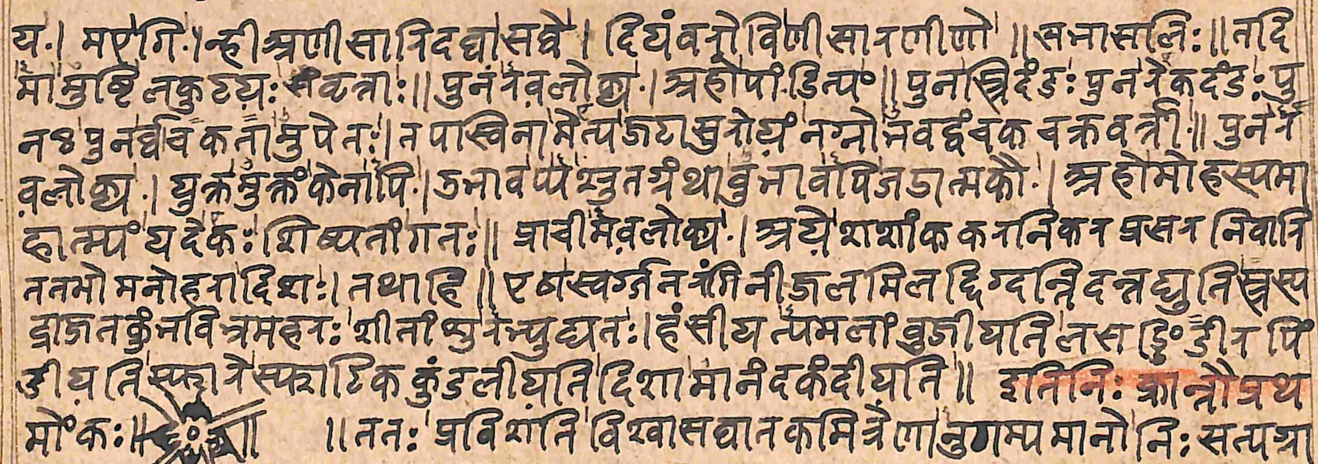 य॰। मएगि॰। न्हीअणीसारिदघासव्वै। दियंवरोविणीसारणीणो॥ सभासलिः॥ तदि
मामुष्टिलकुटय़ः संवृत्ताः॥ पुनरवलोक्य॰। अहोपांडित्य॰॥ पुनस्त्रिदंडः पुनरेकदंडः पु
नः पुनर्वचकतामुपेतः। तपास्विनामेत्यजटासुरोयं नग्नोभवद्वंचकचक्रवर्त्ती॰॥ पुनर
वलोक्य॰। युक्तमुक्तंकेनापि॰। उभावप्यश्रुतग्रंथावुभावपिजडात्मकौ॰। अहोमोहस्यमा
हात्म्यं यदेकः शिष्यतांगतः॥ प्राचीमवलोक्य॰। अये शशांककरनिकरप्रसरनिवारि
ततमोमनोहरादिशः। तथाहि॥ एणस्वर्गतरंगिनीजलमिलद्दिग्दन्तिदन्तद्युतिस्त्रस्य
द्राजतकुंभविभ्रमहरः शीतांशुरभ्युद्यतः। हंसीयत्यमलांवुजीयतिलसड्डिंडीरपिं
डीयतिस्फारस्फाटिककुंडलीयतिदिशामानंदकंदीयति॥ इतिनिःक्रान्तौप्रथ
मोंकः॥ ॥ ॥ततः प्रविशति विश्वासघातकमित्रेणानुगम्यमानो निः सत्यग्रा